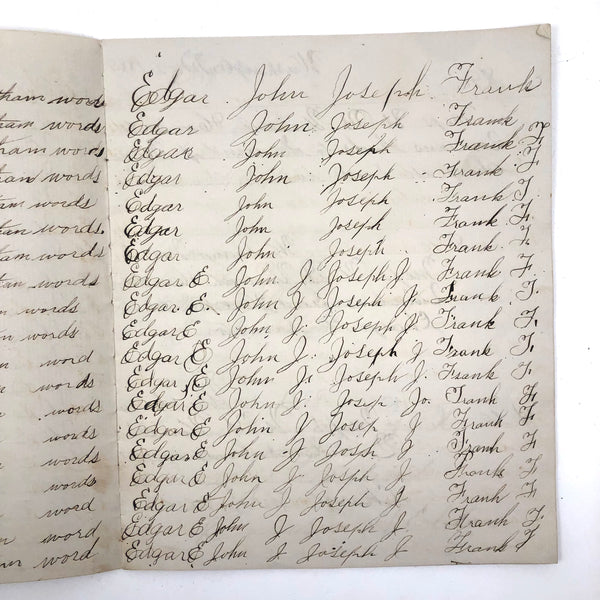 tham words
tham words
tham words
than words
ham words
than words
tam words
tan words
an words
n words
word
words
words
words
words
words
word
word
word
Edgar John Joseph Frank
Edgar John Joseph Frank F
Edgar John Joseph Frank F
Edgar John Joseph Frank F
Edgar John Joseph Frank F.
Edgar John Joseph Frank F.
Edgar John Joseph Frank F.
Edgar E. John J Joseph J Frank F.
Edgar E. John J Joseph J Frank F.
Edgar E John J. Joseph J. Frank F,
Edgar E John J Joseph J Frank F.
Edgar E John J. Joseph J Frank F.
Edgar E John J. Josep Jo. Frank F
Edgar E John J Josep J Frank F
Edgar E John J Josph J Frank F
Edgar E John J Josph J Frank F
Edgar E John J Joseph J Frank F
Edgar E John J Joseph J Frank F.
Edgar E John J Joseph J Frank F